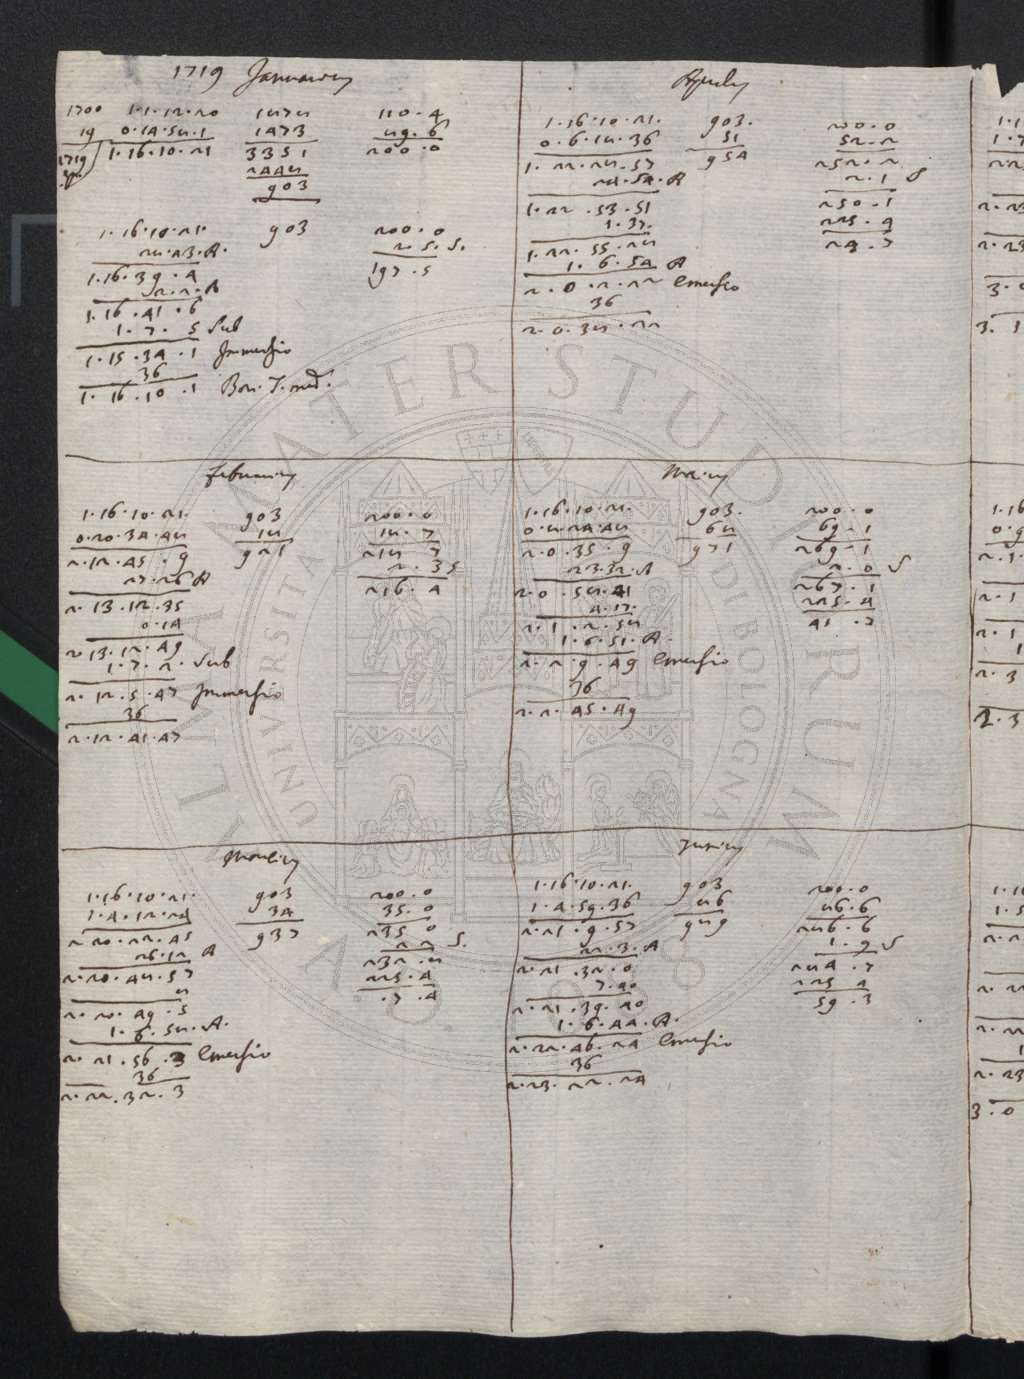 1719 Januarius
1700 1.1.12.20 1878 110.4
19 0.14.58.1 1473 89.6
1719 1.16.10.21 3351 200.0
2448
903
1.16.10.21. 903 200.0
28.43.A. 2.5.S.
1.16.39.4 197.5
2.2.A
1.16.41.6
1.7.5 Sub
1.15.34.1 Immersio
36
1.16.10.1 Bon. T. med.
Februarius
1.16.10.21. 903 200.0
0.20.34.48 18 18.7
2.12.45.9 921 218 7
27.26 A 2.3 S
2.13.12.35 216.4
0.14
2.13.12.49
1.7.2. Sub
2.12.5.47 Immersio
36
2.12.41.47
Martius
1.16.10.21. 903 200.0
1.4.12.24 34 35.0
2 20.22.45 937 235 0
26.12 A 2 2 S.
2.20.48.57 232.8
8 225.4
2.20.49.5 .7.4
1.6.58.A.
2.21.56.3 Emersio
36
2.22.32.3
Aprilis
1.16.10.21. 903. 200.0
0.6.18.36 51 52.2
1.22.28.57 954 252.2
24.54.A 2.1 S
1.22.53.51 250.1
1.37. 225.4
1.22.55.28 24.7
1.6.54 A
2.0.2.22 Emersio
36
2.0.38.22
Maius
1.16.10.21. 903. 200.0
0.8.24.48 68 69.1
2.0.35.9 971 269.1
23.32.A 2.0 S
2.0.58.41 267.1
4.17. 225.4
2.1.2.58 41.7
1.6.51.A.
2.2.9.49 Emersio
36
2.2.45.49
Junius
1.16.10.21. 903 200.0
1.4.59.36 86 86.6
2.21.9.57 989 286.6
22.3.A 1.9 S
2.21.32.0 284.7
7.40 225 4
2.21.39.40 59.3
1.6.44.A.
2.22.46.24 Emersio
36
2.23.22.24
ALMA MATER STUDIORUM
UNIVERSITÀ DI BOLOGNA